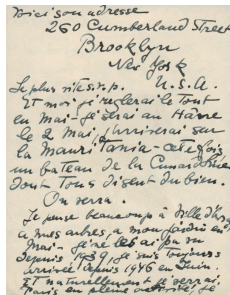 Voici son adresse
260 Cumberland Street
Brooklyn
New York
U.S.A.
Le plus vite s.v.p.
Et moi je réglerai le tout
en Mai - je serai au Havre
le 2 Mai j'arriverai sur
la Mauritania - cette fois
un bateau de la Cunard Line
dont Tous disent du bien.
On verra.
Je pense beaucoup à Ville d'Avray
à mes arbres, à mon jardin en
Mai - je ne l'ai pas vu
depuis 1939, je suis toujours
arrivée depuis 1946 en Juin.
Et naturellement je verrai
Paris en pleine